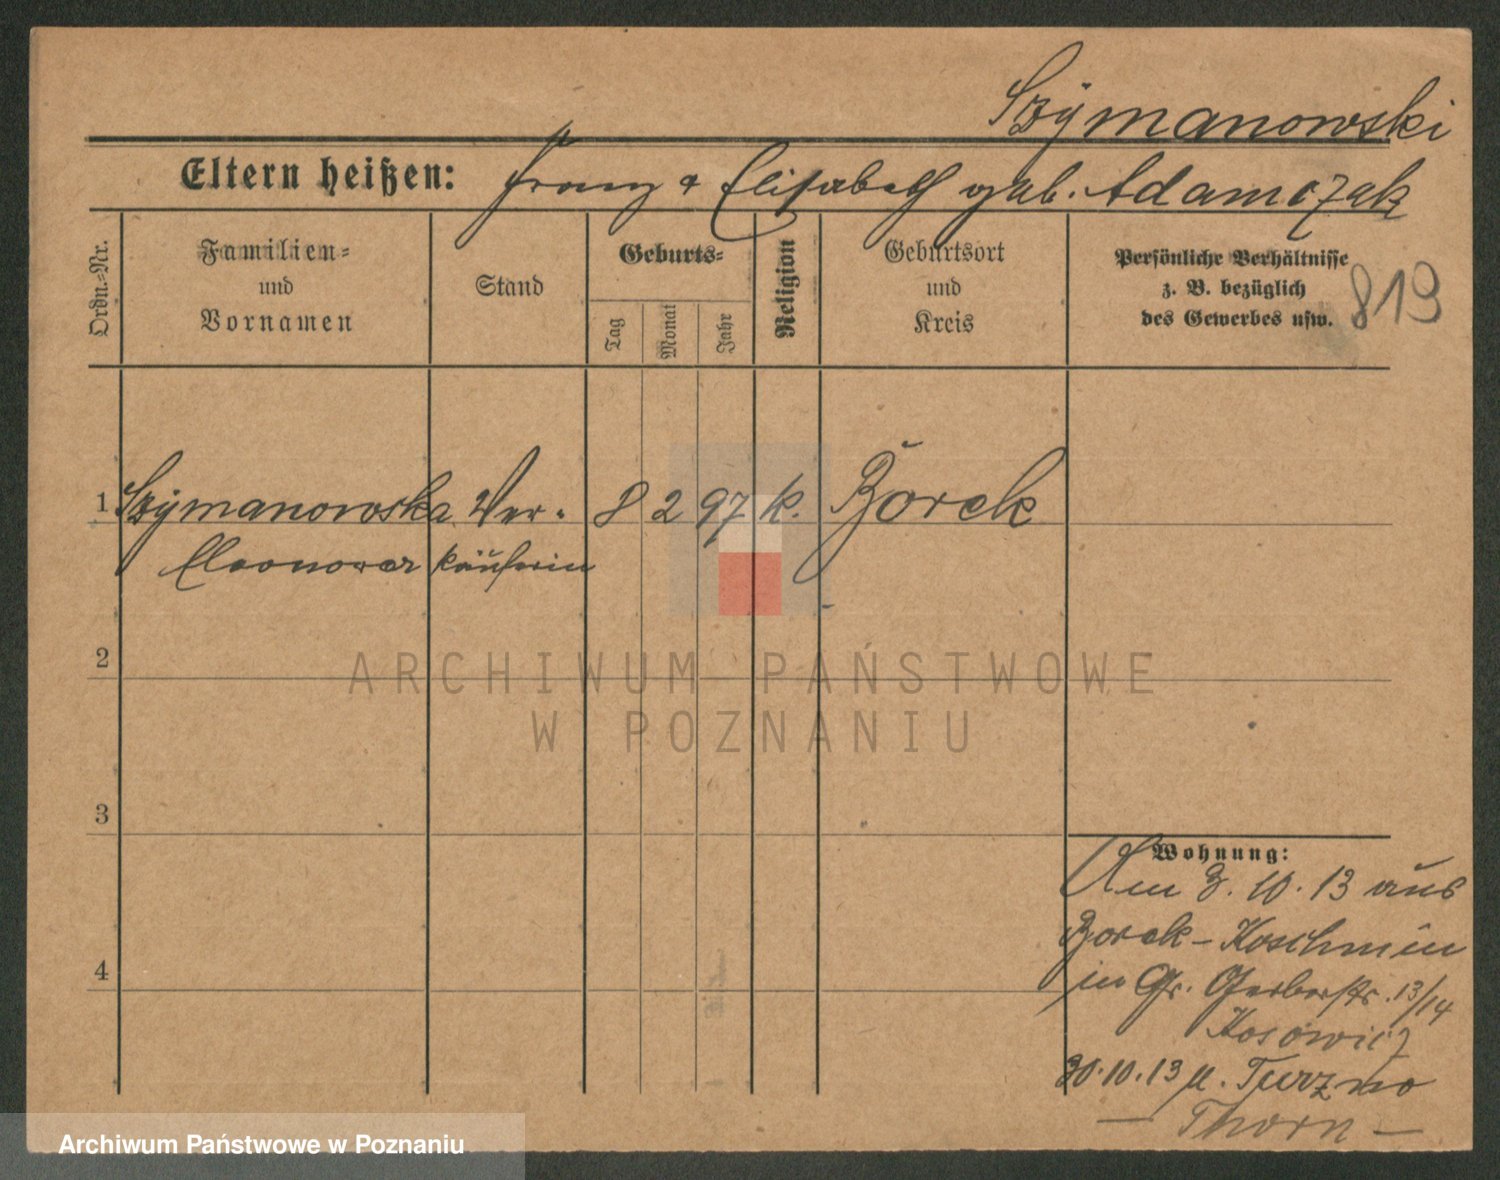 Szymanowski
Eltern heißen: Franz & Elisabeth geb. Adamczak
Ordn.-Nr.
Familien-
und
Vornamen
Stand
Geburts-
Tag
Monat
Jahr
Religion
Geburtsort
und
Kreis
Persönliche Verhältnisse
z. B. bezüglich
des Gewerbes usw.
819
1 Szymanowska Ver- 8 2 97 k. Borek
Eleonora käuferin
2
3
4
Wohnung:
Am 3. 10. 13 aus
Borek - Koschmin
in Gr. Gerberstr. 13/14
Kosowicz
30.10.13 n. Turzno
- Thorn -
ARCHIWUM PAŃSTWOWE
W POZNANIU
Archiwum Państwowe w Poznaniu